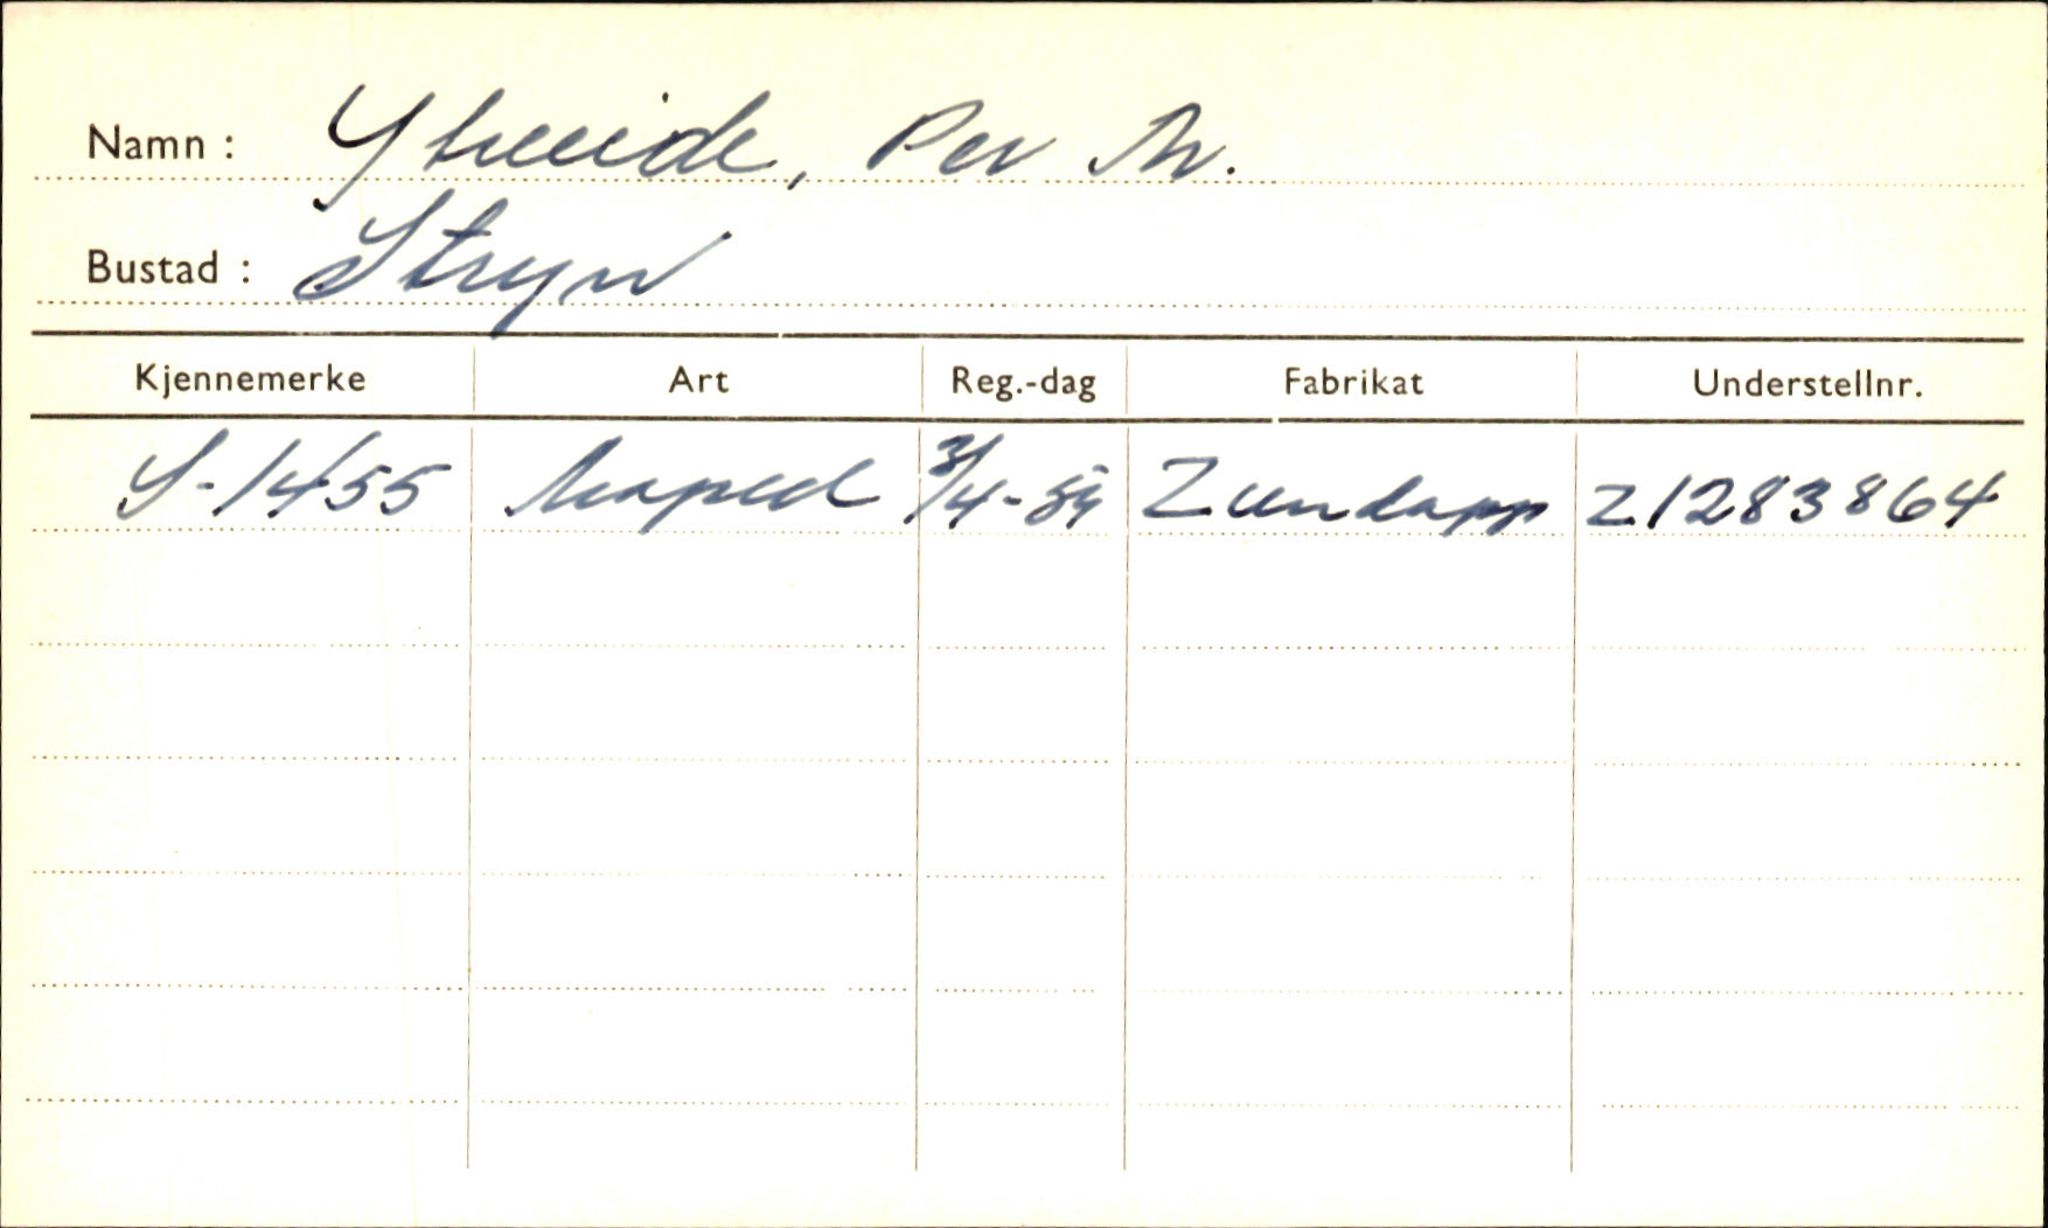 Namn : Ytreeide, Per Th.
Bustad : Stryn
Kjennemerke Art Reg.-dag Fabrikat Understellnr.
S-1455 Moped 3/4-59 Zundapp Z1283864